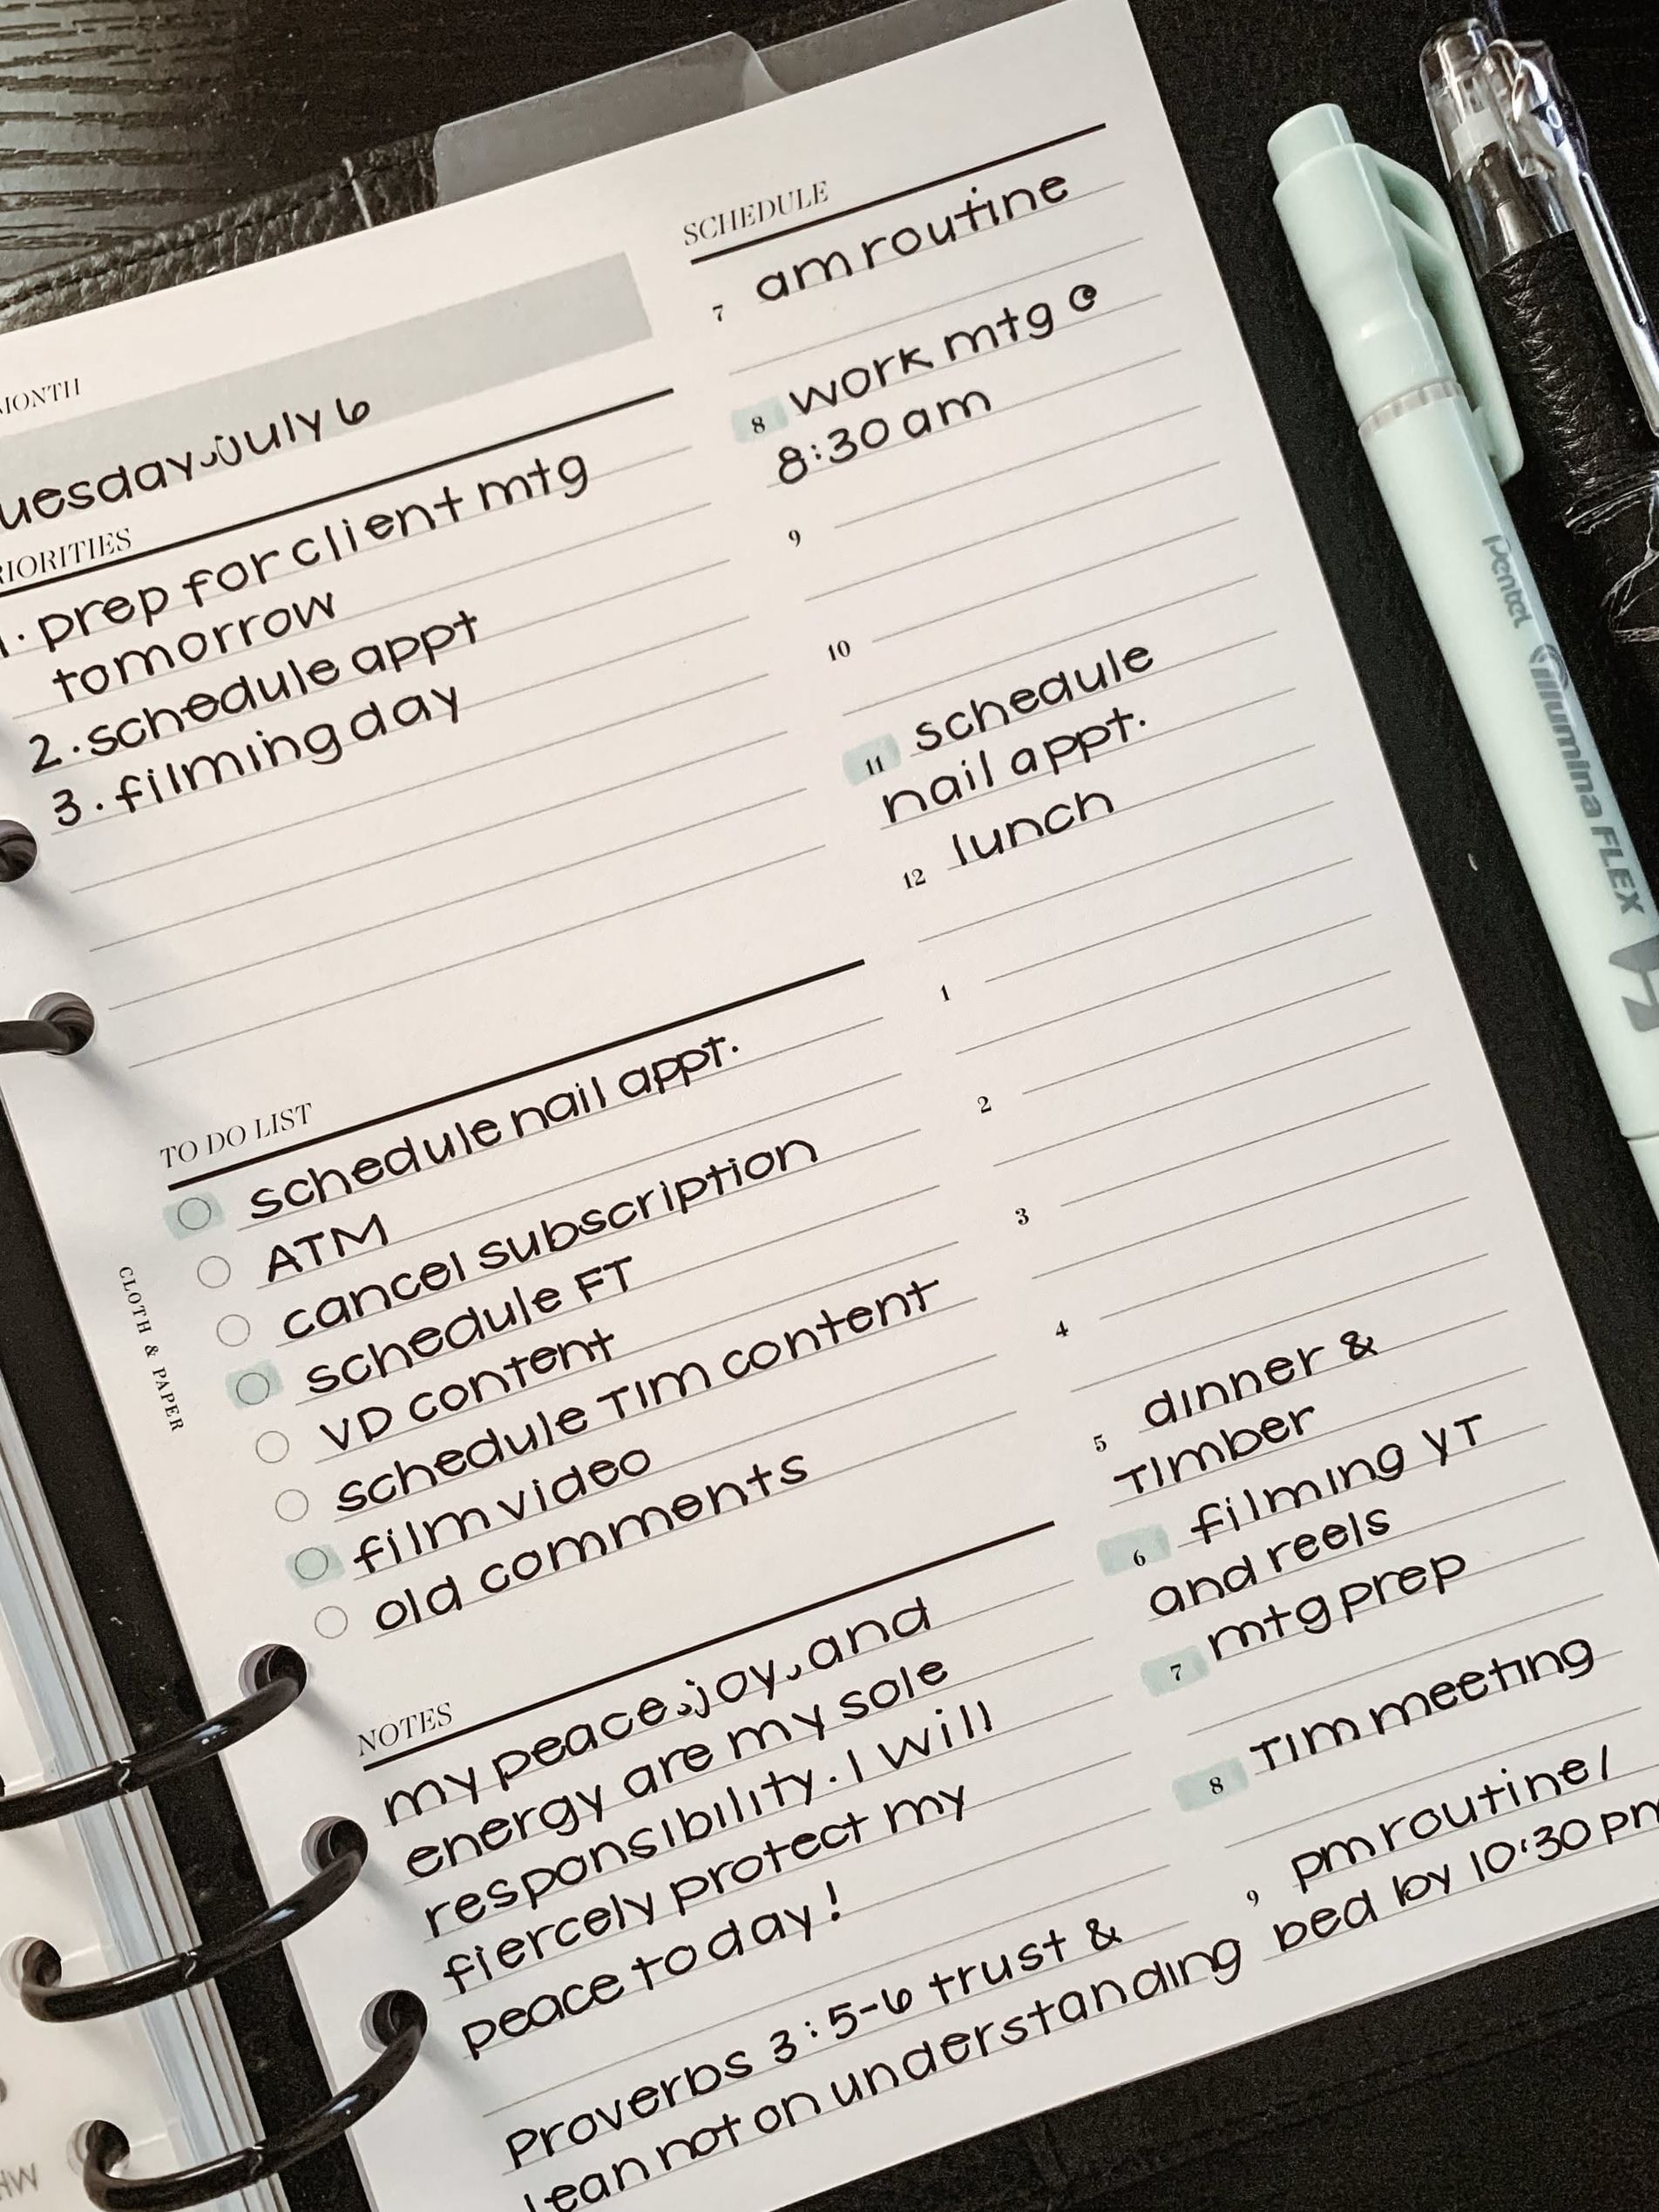 MONTH
uesday, July 6
RIORITIES
1. prep for client mtg
tomorrow
2. schedule appt
3. filming day
TO DO LIST
schedule nail appt.
ATM
cancel subscription
schedule FT
VD content
schedule TIM content
film video
old comments
CLOTH & PAPER
NOTES
my peace, joy, and
energy are my sole
responsibility. I will
fiercely protect my
peace today!
Proverbs 3:5-6 trust &
lean not on understanding
SCHEDULE
7 am routine
work mtg @
8 8:30 am
9
10
schedule
11 nail appt.
12 lunch
1
2
3
4
5 dinner &
Timber
6 filming YT
and reels
7 mtg prep
8 TIM meeting
9 pm routine/
bed by 10:30 pm
Pentel illumina FLEX